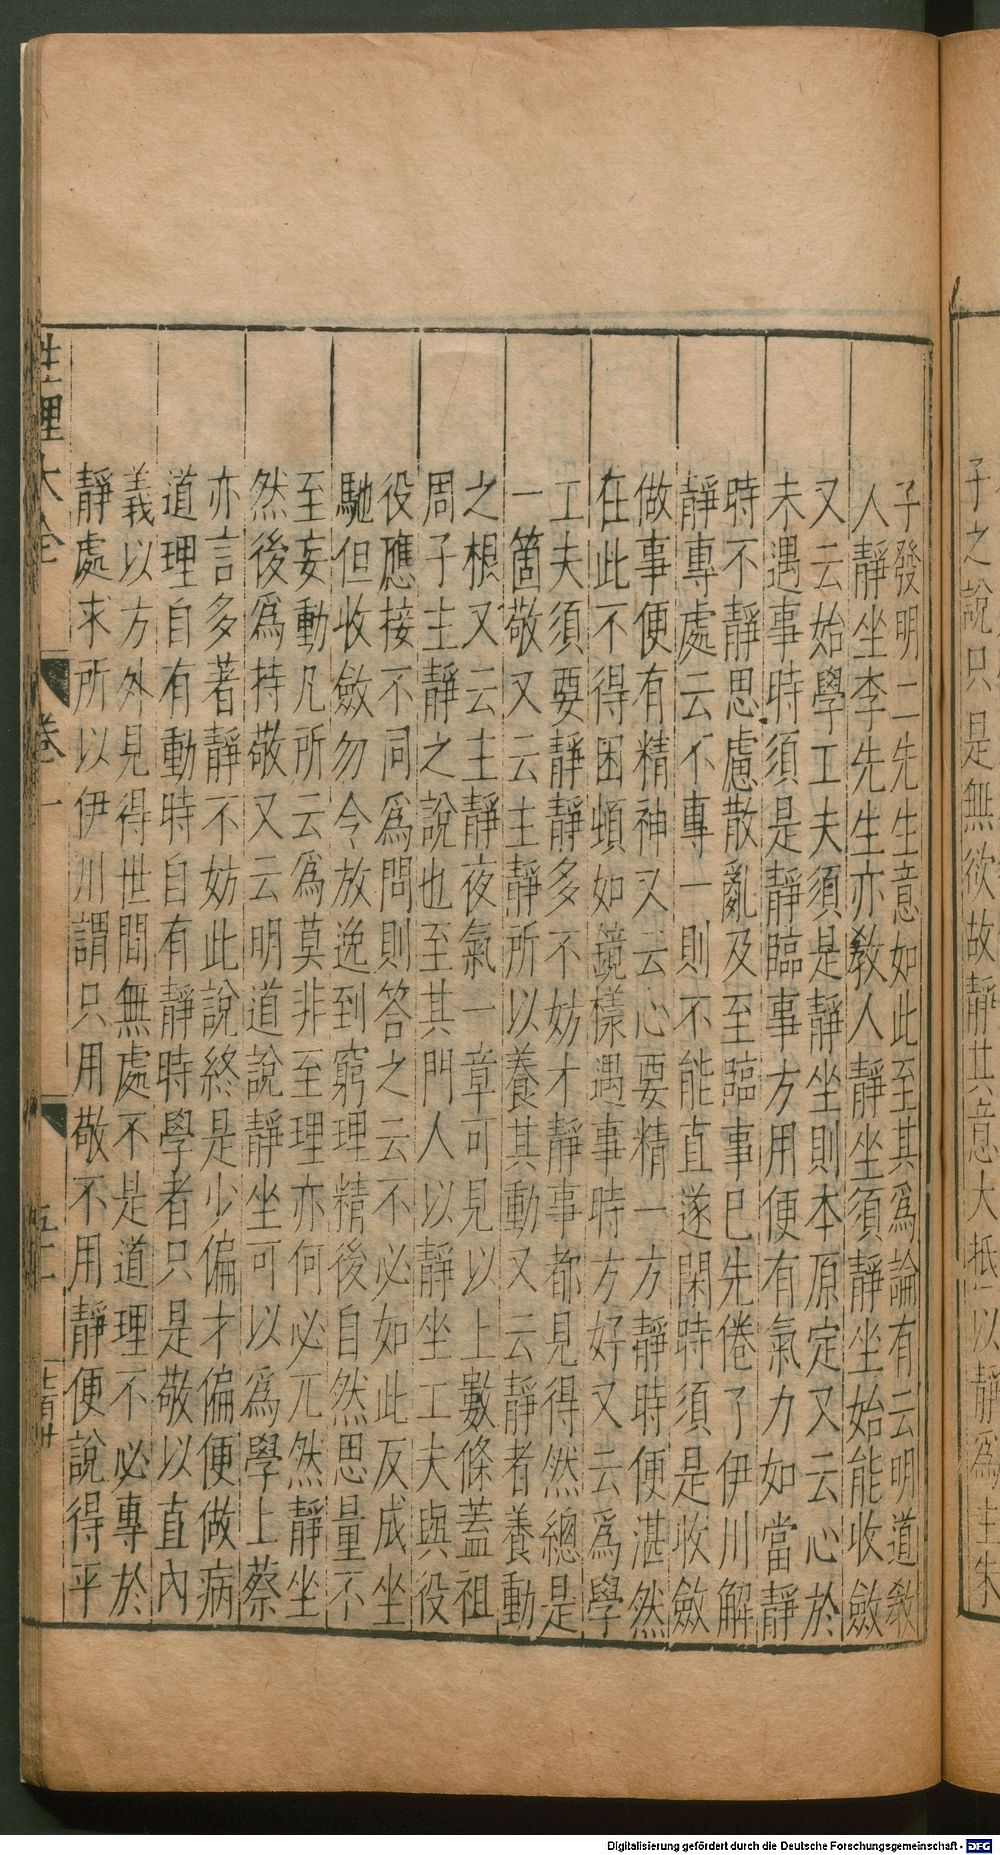 子之說只是無欲故靜其意大抵以靜為主朱
子發明二先生意如此至其為論有云明道教
人靜坐李先生亦教人靜坐須靜坐始能收斂
又云始學工夫須是靜坐則本原定又云心於
未遇事時須是靜臨事方用便有氣力如當靜
時不靜思慮散亂及至臨事已先倦了伊川解
靜專處云不專一則不能直遂閑時須是收斂
做事便有精神又云心要精一方靜時便湛然
在此不得困頓如鏡樣遇事時方好又云為學
工夫須要靜靜多不妨才靜事都見得然總是
一箇敬又云主靜所以養其動又云靜者養動
之根又云主靜夜氣一章可見以上數條蓋祖
周子主靜之說也至其門人以靜坐工夫與役
役應接不同為問則答之云不必如此反成坐
馳但收斂勿令放逸到窮理精後自然思量不
至妄動凡所云為莫非至理亦何必兀然靜坐
然後為持敬又云明道說靜坐可以為學上蔡
亦言多著靜不妨此說終是少偏才偏便做病
道理自有動時自有靜時學者只是敬以直內
義以方外見得世間無處不是道理不必專於
靜處求所以伊川謂只用敬不用靜便說得平
性理大全 卷一
Digitalisierung gefördert durch die Deutsche Forschungsgemeinschaft - DFG